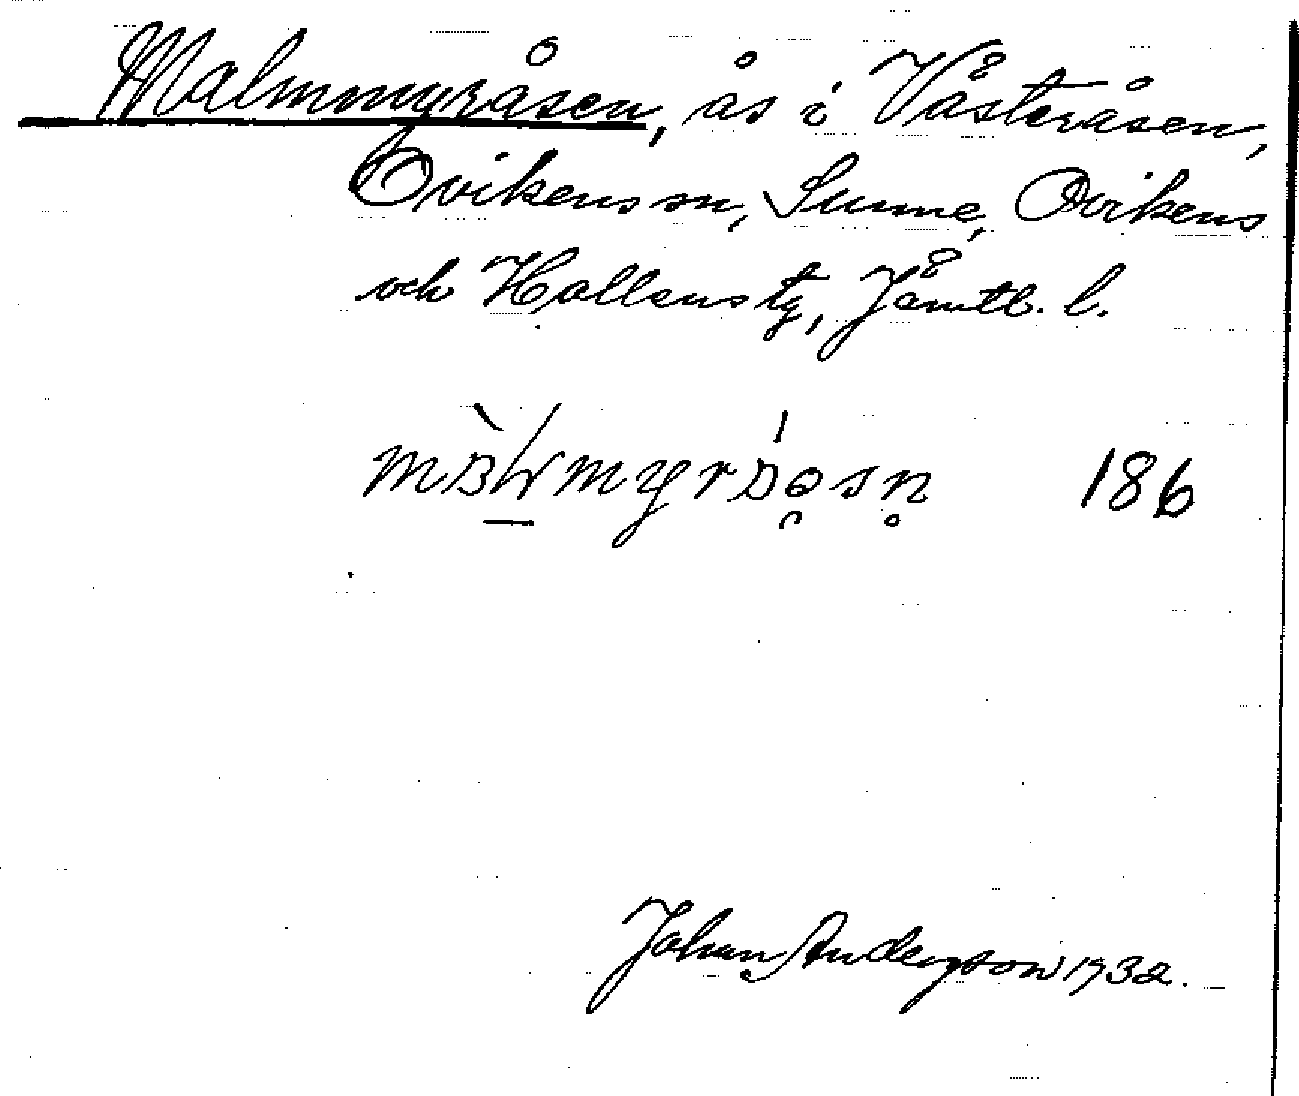 Malmmyråsen, ås i Västeråsen,
Ovikens sn, Sunne, Ovikens
och Hallens tg, Jämtl. l.
186
Johan Anderzson 1932.